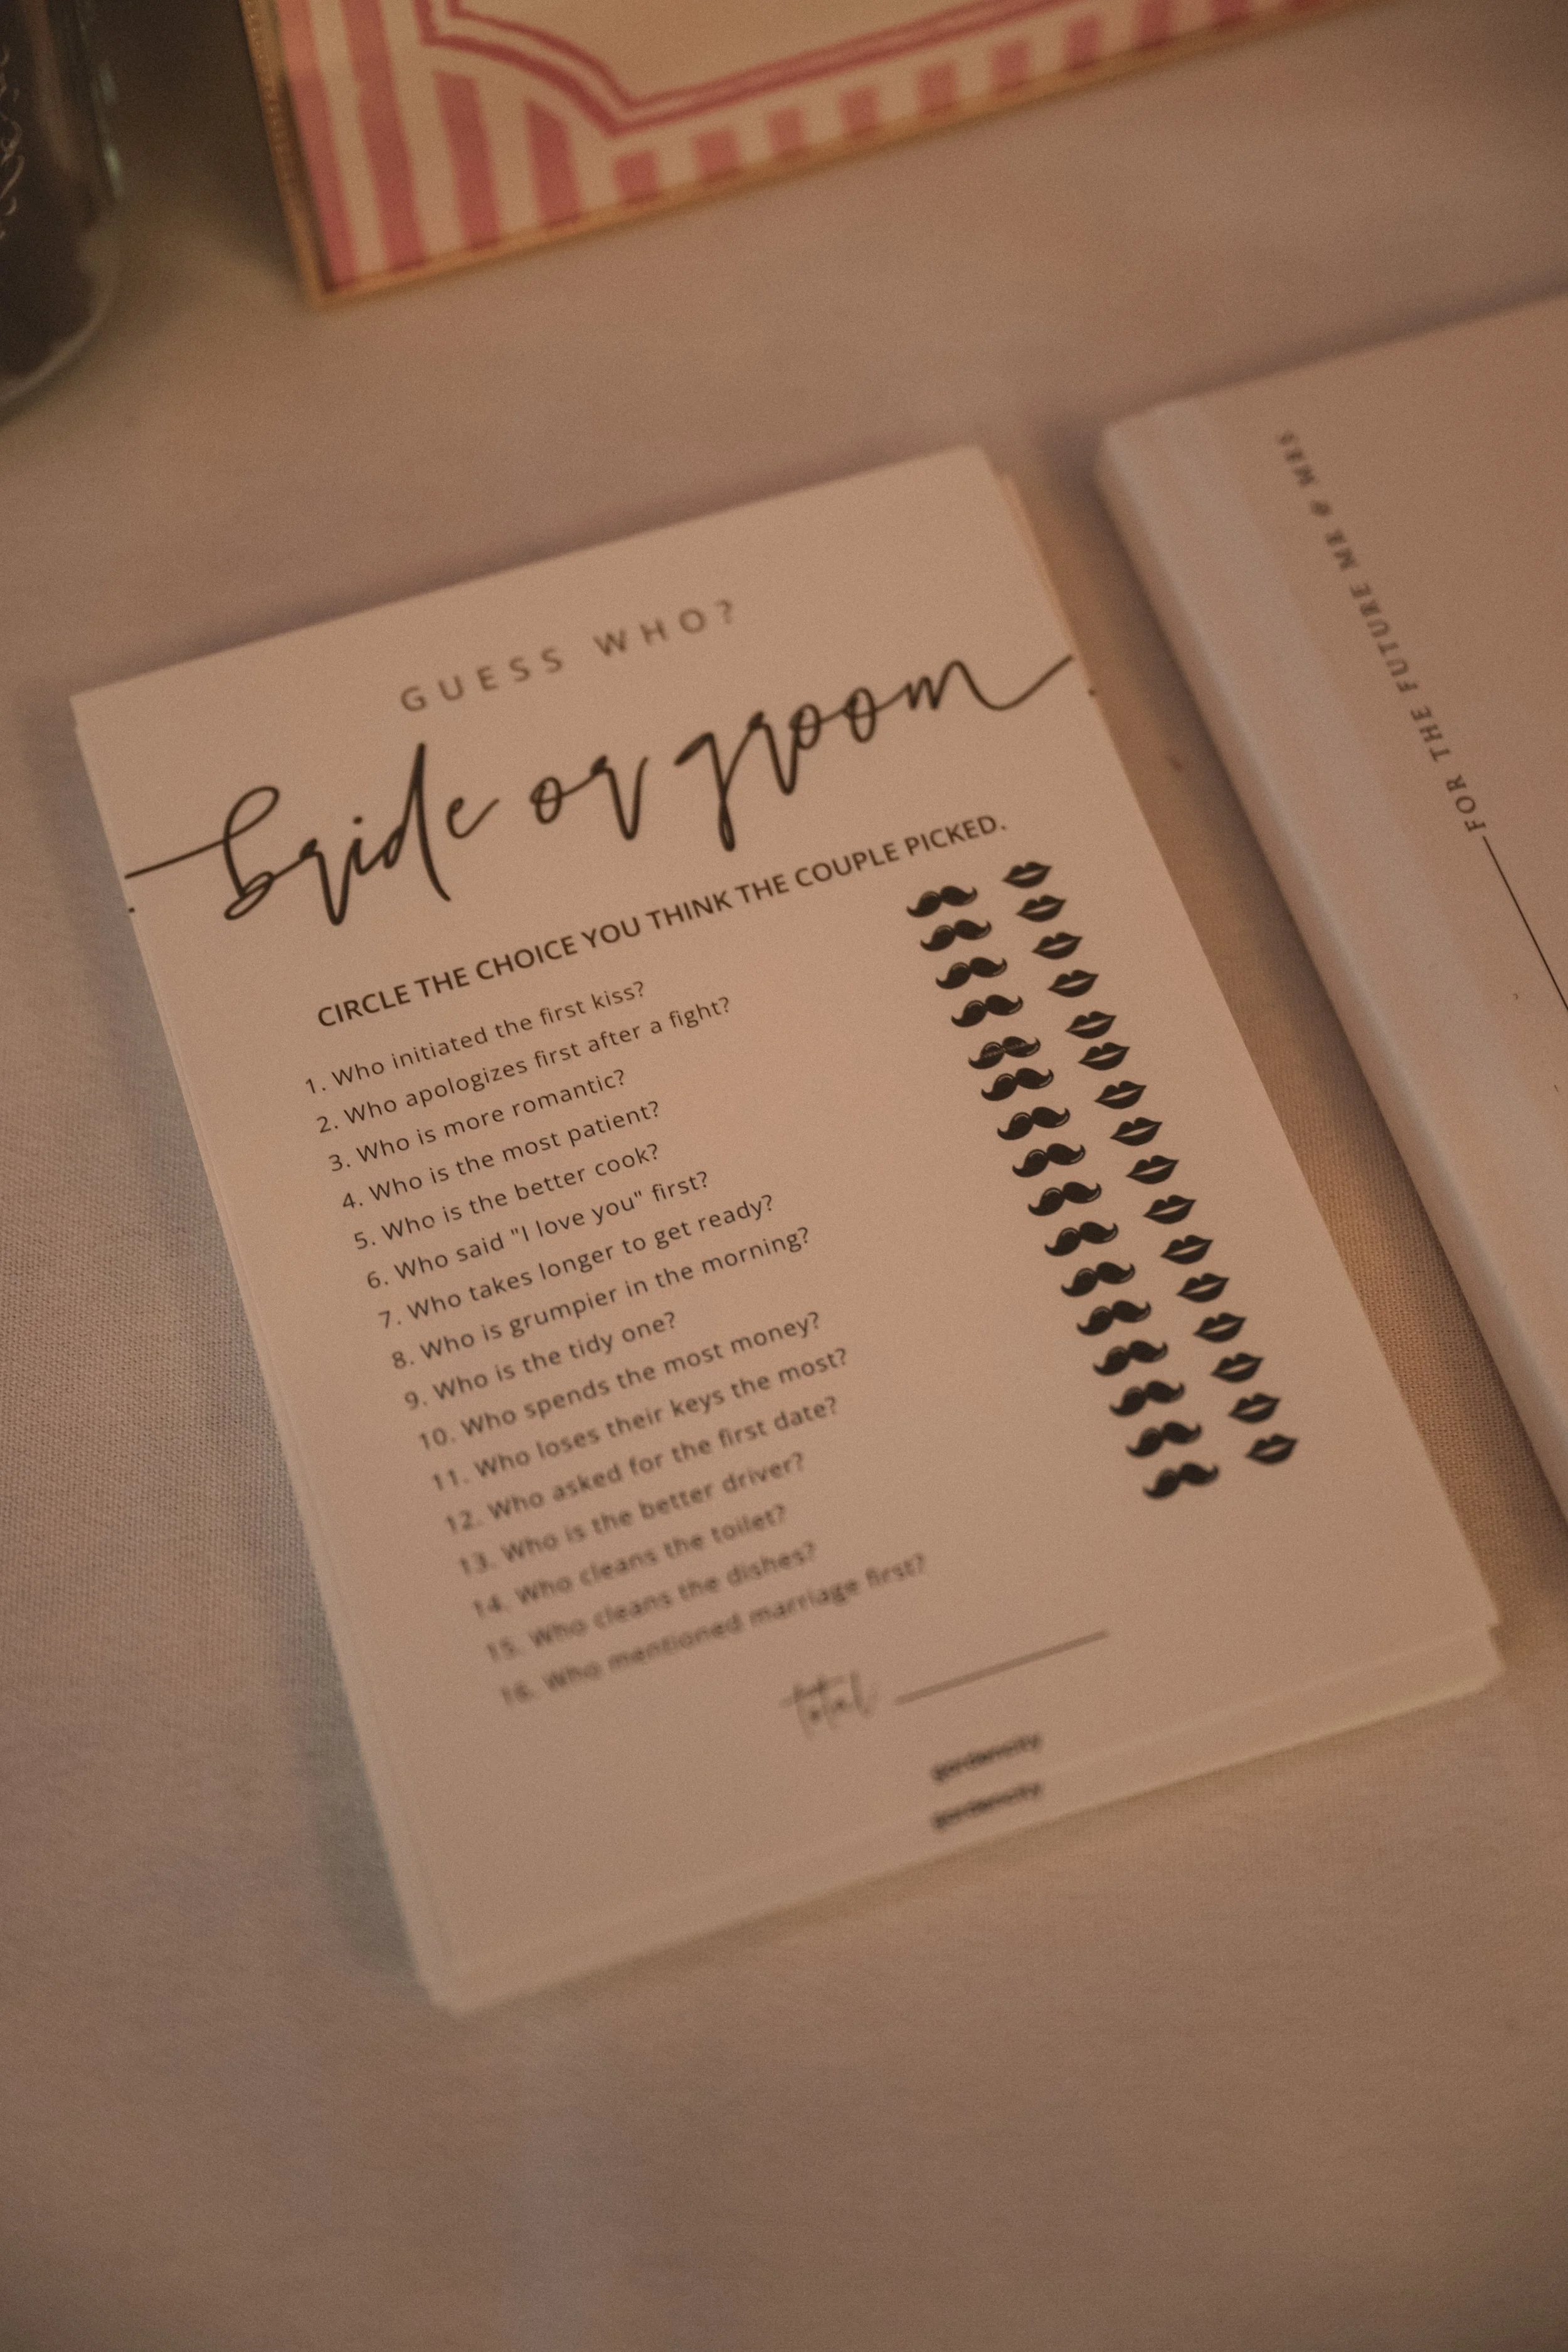 GUESS WHO?
bride or groom
CIRCLE THE CHOICE YOU THINK THE COUPLE PICKED.
1. Who initiated the first kiss?
2. Who apologizes first after a fight?
3. Who is more romantic?
4. Who is the most patient?
5. Who is the better cook?
6. Who said "I love you" first?
7. Who takes longer to get ready?
8. Who is grumpier in the morning?
9. Who is the tidy one?
10. Who spends the most money?
11. Who loses their keys the most?
12. Who asked for the first date?
13. Who is the better driver?
14. Who cleans the toilet?
15. Who cleans the dishes?
16. Who mentioned marriage first?
total
FOR THE FUTURE MR & MRS